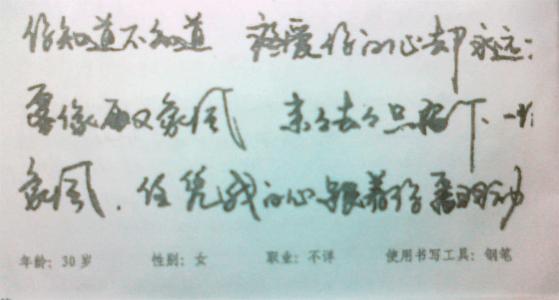 你知道不知道 疼爱你的心却永远:
要像雨又象风 来来去去只留下、一
象风、任凭我的心跟着你翩翩
年龄:30岁 性别:女 职业:不详 使用书写工具:钢笔